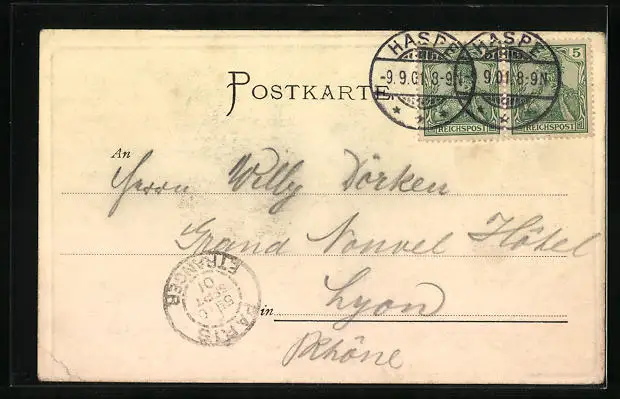 HASPE HASPE
-9.9.01.8-9N 9.01.8-9N
5
POSTKARTE
REICHSPOST REICHSPOST
An
Herrn Willy Dörken
Grand Nouvel Hôtel
in Lyon
Rhône
PARIS ETRANGER
SEPT
01